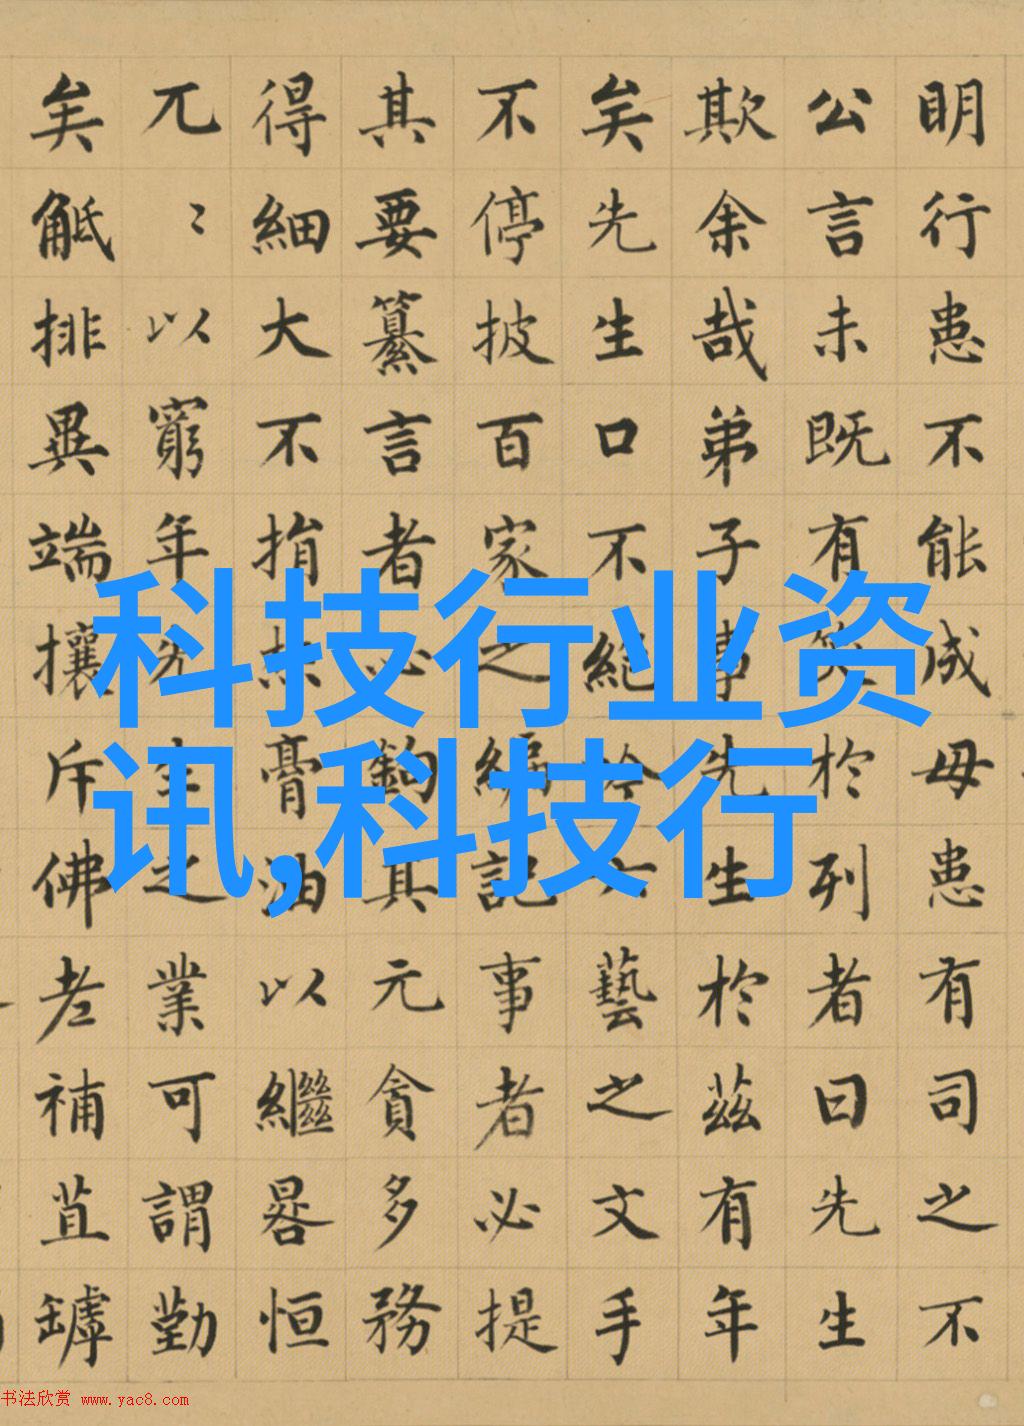 明行患不能成毋患有司之不
公言未既有笑於列者曰先生
欺余哉弟子事先生於茲有年
矣先生口不絕吟六藝之文手
不停披百家之編記事者必提
其要纂言者必鉤其元貪多務
得細大不捐焚膏油以繼晷恒
兀〻以窮年先生之業可謂勤
矣觝排異端攘斥佛老補苴罅
科技行业资
讯,科技行
书法欣赏 www.yac8.com